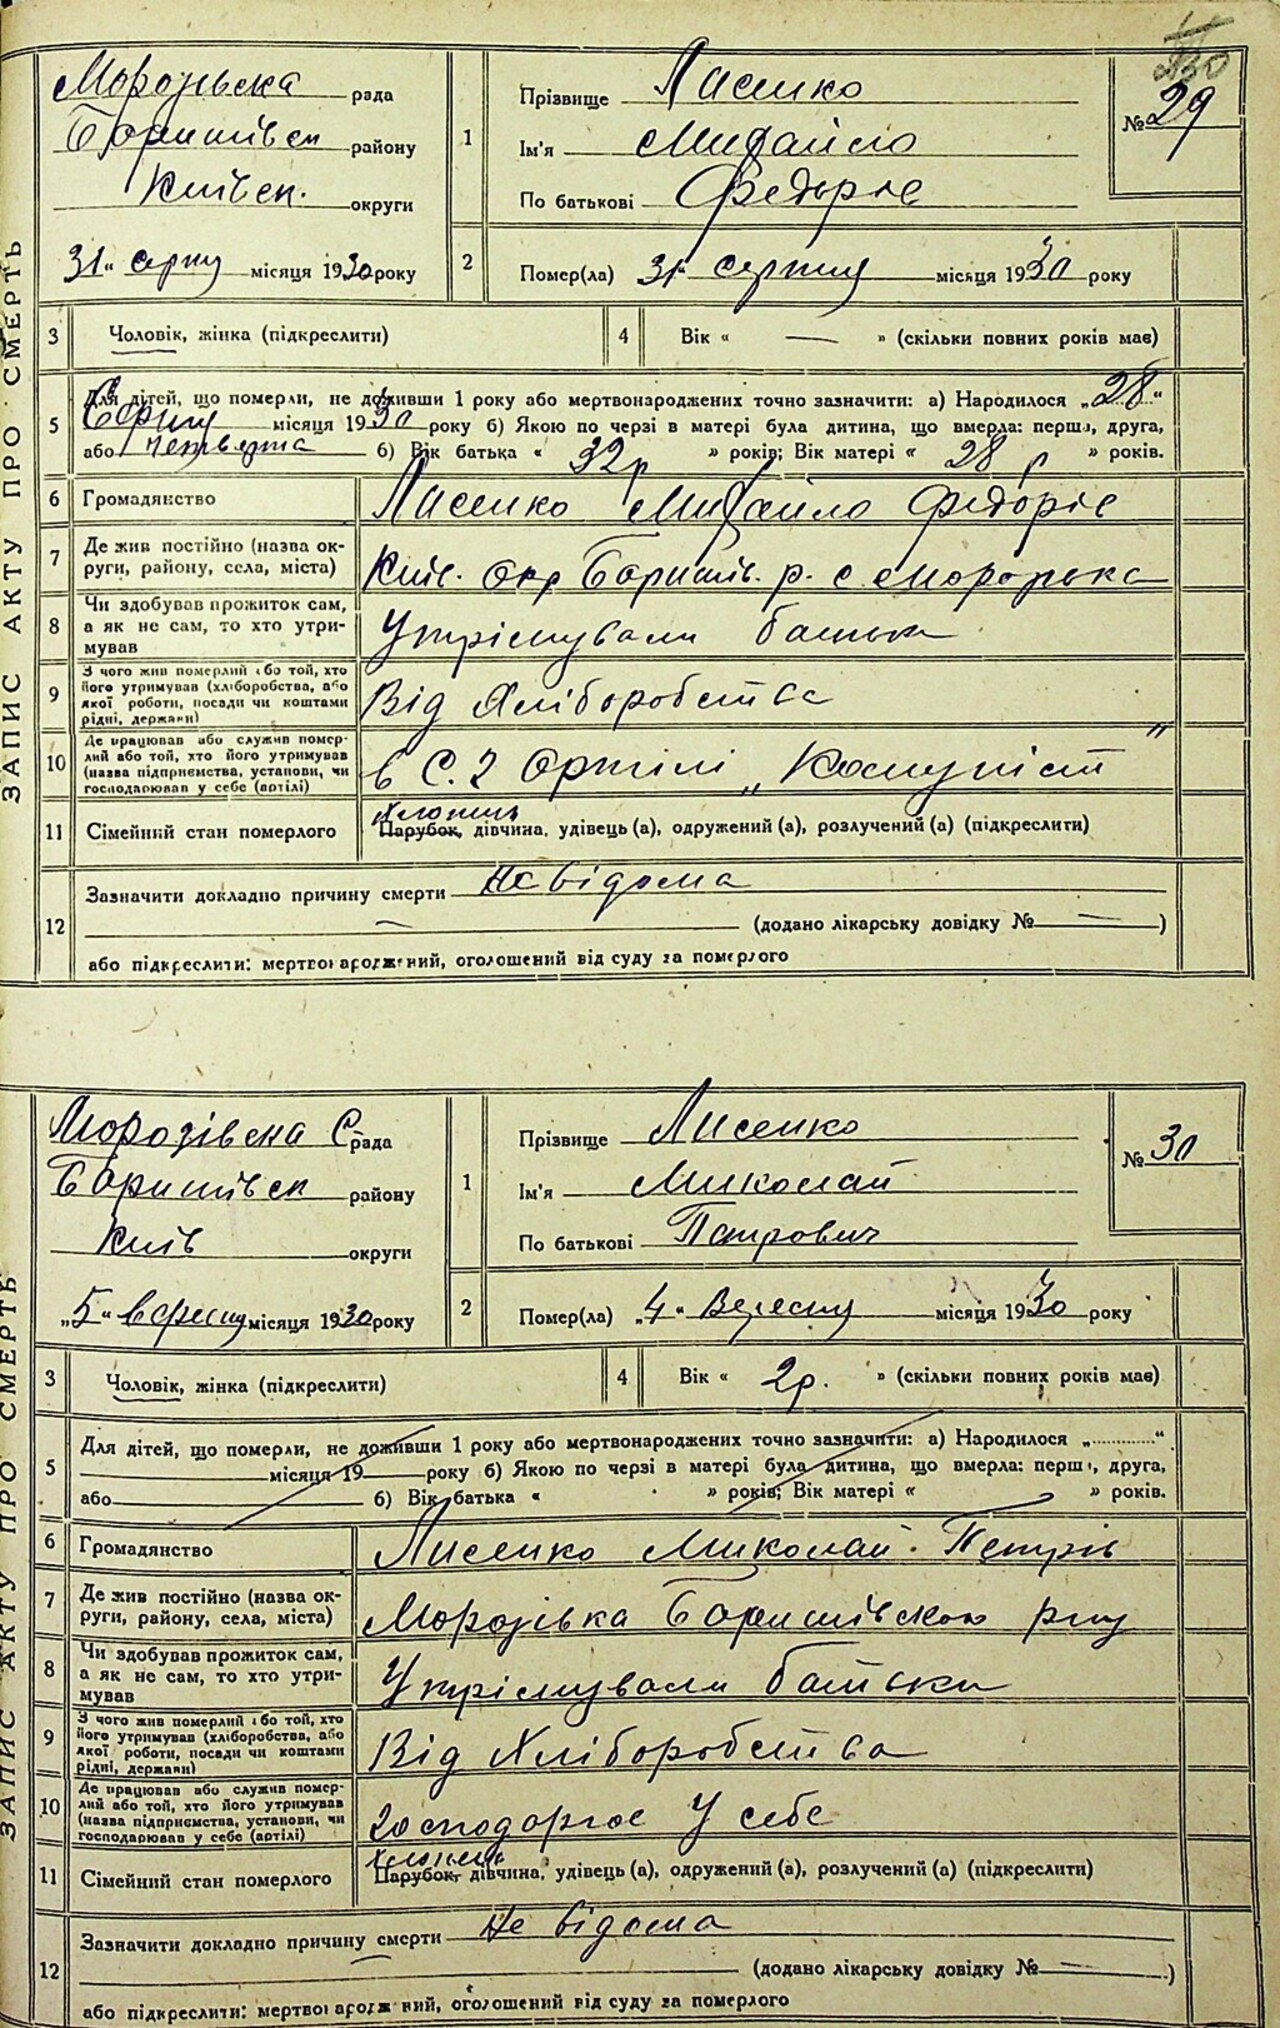 ЗАПИС АКТУ ПРО СМЕРТЬ
Морозівська рада
Баришівськ району
Київськ. округи
31 серпн місяця 1930 року
1
Прізвище Лисенко
Ім'я Михайло
По батькові Федоріє
№ 29
2
Помер(ла) 31 серпня місяця 1930 року
3
Чоловік, жінка (підкреслити)
4
Вік « — » (скільки повних років має)
5
Для дітей, що померли, не доживши 1 року або мертвонароджених точно зазначити: а) Народилося „28“
Серпня місяця 1930 року б) Якою по черзі в матері була дитина, що вмерла: перша, друга,
або четверта б) Вік батька « 32р » років; Вік матері « 28 р » років.
6
Громадянство
Лисенко Михайло Федоріє
7
Де жив постійно (назва ок-
руги, району, села, міста)
Київ. окр Баришів. р. с Морозовка
8
Чи здобував прожиток сам,
а як не сам, то хто утри-
мував
Утрімували батьки
9
З чого жив померлий або той, хто
його утримував (хліборобства, або
якої роботи, посади чи коштами
рідні, держави)
Від Хліборобства
10
Де працював або служив помер-
лий або той, хто його утримував
(назва підприємства, установи, чи
господарював у себе (артілі)
в С. г Ортілі „Комуніст”
11
Сімейний стан померлого
Хлопець
Парубок, дівчина, удівець (а), одружений (а), розлучений (а) (підкреслити)
12
Зазначити докладно причину смерти Не відома
— (додано лікарську довідку № — )
або підкреслити: мертвонароджений, оголошений від суду за померлого
ЗАПИС АКТУ ПРО СМЕРТЬ
Морозівска С. рада
Баришівск району
Київ округи
„5“ вересня місяця 1930 року
1
Прізвище Лисенко
Ім'я Миколай
По батькові Петрович
№ 30
2
Помер(ла) „4“ Вересня місяця 1930 року
3
Чоловік, жінка (підкреслити)
4
Вік « 2р. » (скільки повних років має)
5
Для дітей, що померли, не доживши 1 року або мертвонароджених точно зазначити: а) Народилося „............“
місяця 19 року б) Якою по черзі в матері була дитина, що вмерла: перша, друга,
або б) Вік батька « » років; Вік матері « » років.
6
Громадянство
Лисенко Миколай Петрів
7
Де жив постійно (назва ок-
руги, району, села, міста)
Морозівка Баришівского рну
8
Чи здобував прожиток сам,
а як не сам, то хто утри-
мував
Утрімували батьки
9
З чого жив померлий або той, хто
його утримував (хліборобства, або
якої роботи, посади чи коштами
рідні, держави)
Від Хліборобства
10
Де працював або служив помер-
лий або той, хто його утримував
(назва підприємства, установи, чи
господарював у себе (артілі)
господорює У себе
11
Сімейний стан померлого
Хлопець
Парубок, дівчина, удівець (а), одружений (а), розлучений (а) (підкреслити)
12
Зазначити докладно причину смерти Не відома
— (додано лікарську довідку № — )
або підкреслити: мертвонароджений, оголошений від суду за померлого